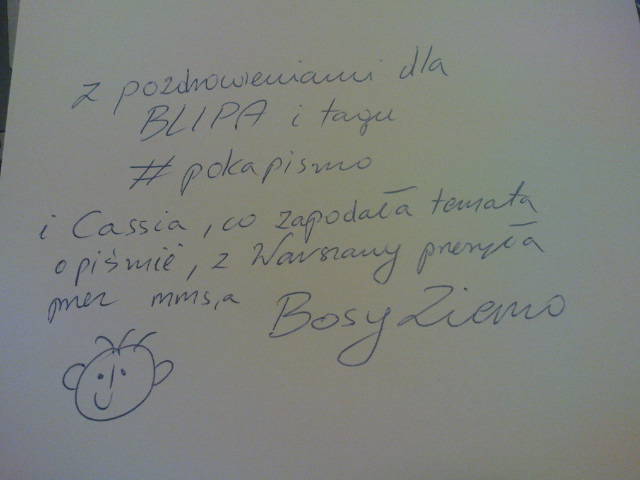 z pozdrowieniami dla
BLIPA i tagu
#pokapismo
i Cassia, co zapodała temata
o piśmie, z Warszawy przesyła
przez mms,a
Bosy Ziemo